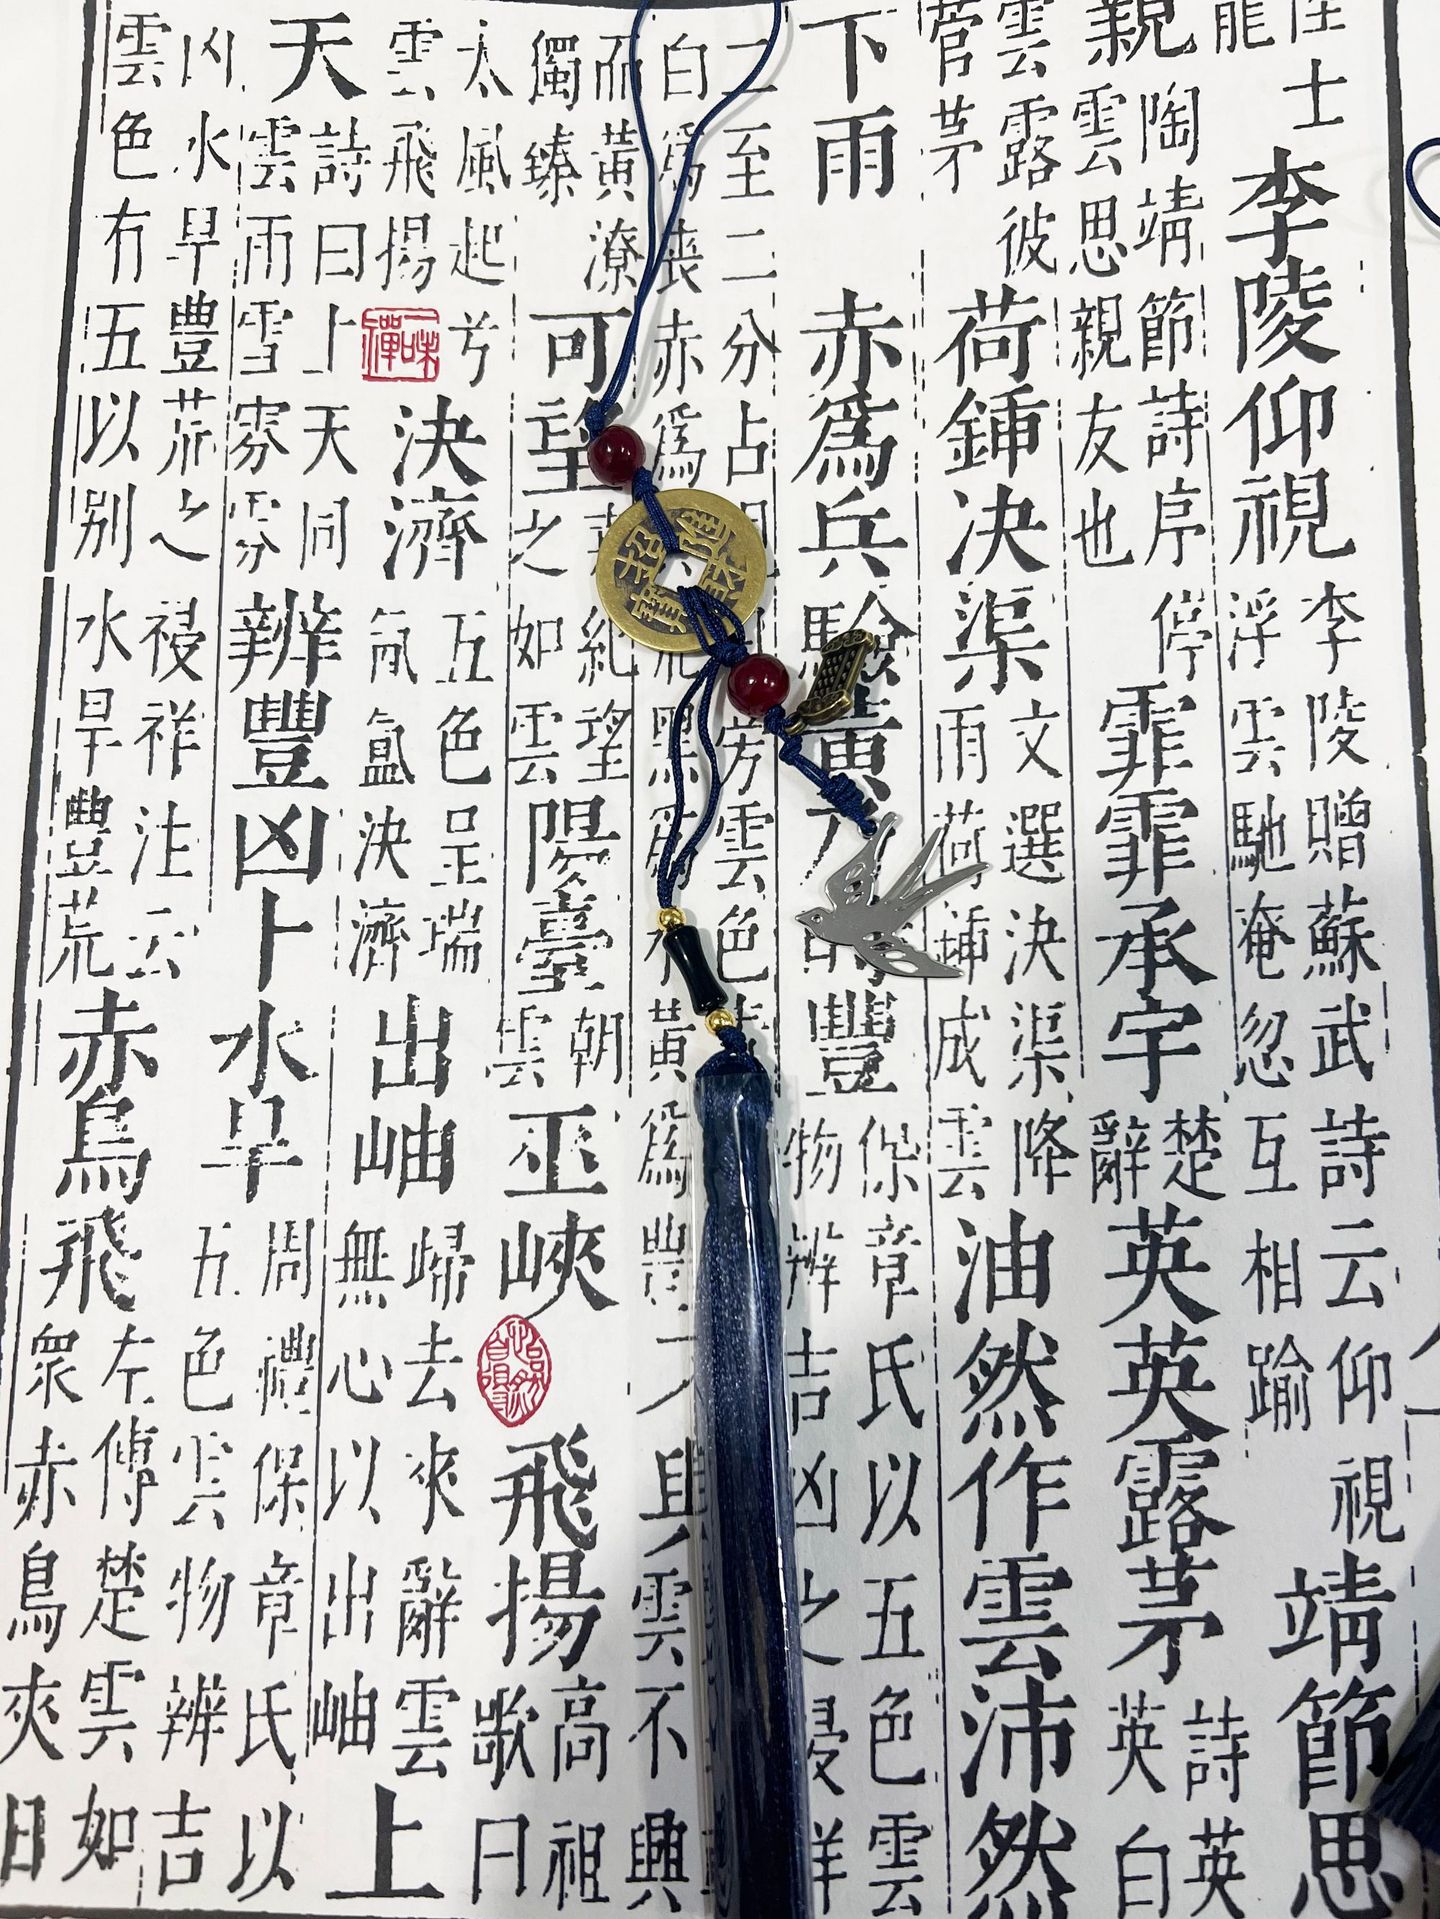 士
龍
李陵仰視
李陵贈蘇武詩云仰視
浮雲馳奄忽互相踰
靖節思
親
陶靖節詩序停
雲思親友也
霏霏承宇
楚
辭
英英露茅
詩英
英白
雲露彼
菅茅
荷鍤決渠
文選決渠降
雨荷鍤成雲
油然作雲沛然
下雨
赤爲兵
驗黃
豐
保章氏以五色雲
物辨吉凶之祲祥
二至二分占
旁雲色
白爲喪赤爲
黑爲水黃爲豐
與雲不興
而黃潦
獨臻
可望
紀望
之如雲
陽臺
朝
雲
巫峽
飛揚
高祖
歌曰
太風起兮
雲飛揚
決濟
五色呈瑞
氤氳決濟
出岫
歸去來辭雲
無心以出岫
上
天
詩曰上天同
雲雨雪雰雰
辨豐凶卜水旱
周禮保章氏以
五色雲物辨吉
凶水旱豐荒之祲祥注云
雲色有五以别水旱豐荒
赤鳥飛
左傳楚雲如
眾赤鳥夾日
一味禪
招財進寶